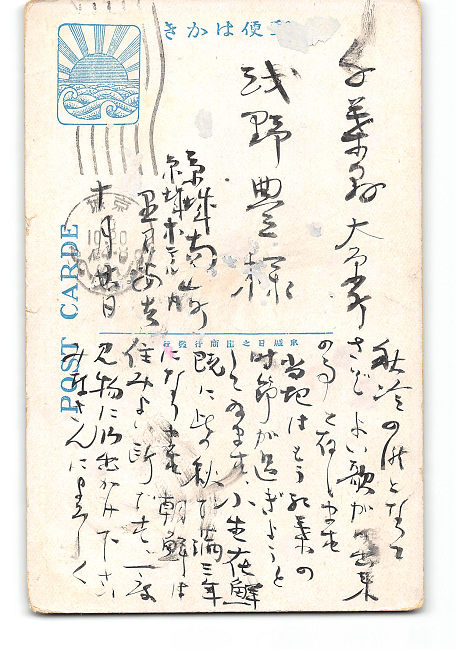 便はかき
千葉縣大原町
浅野豊様
京城南山町
京城ホテル内
十月廿日
POST CARDE
京城日之出商行發行
秋冷の候となって
さぞよい歌が出来
の事と存じます
当地はもう紅葉の
時節が過ぎようと
して居ます、小生在鮮
既に此の秋で満三年
になります 朝鮮は
住みよい所です、一度
見物に御出かけ下さい
みなさんによろしく